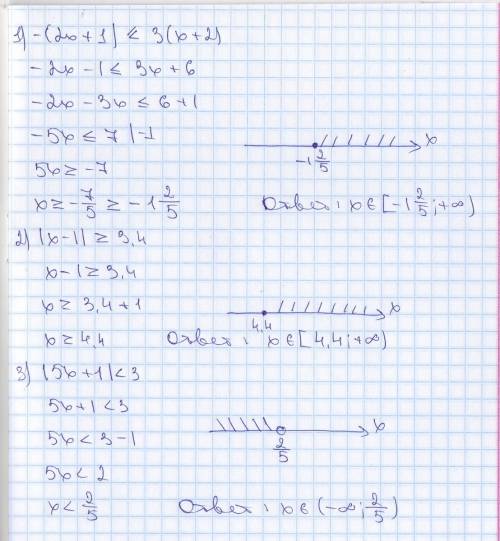 1) -(2x+1) ≤ 3(x+2)
-2x-1 ≤ 3x+6
-2x-3x ≤ 6+1
-5x ≤ 7 |-1
5x ≥ -7
x ≥ -7/5 ≥ -1 2/5
x
-1 2/5
Ответ: x∈[-1 2/5; +∞)
2) |x-1| ≥ 3,4
x-1 ≥ 3,4
x ≥ 3,4+1
x ≥ 4,4
x
4,4
Ответ: x∈[4,4; +∞)
3) |5x+1| < 3
5x+1 < 3
5x < 3-1
5x < 2
x < 2/5
x
2/5
Ответ: x∈(-∞; 2/5)